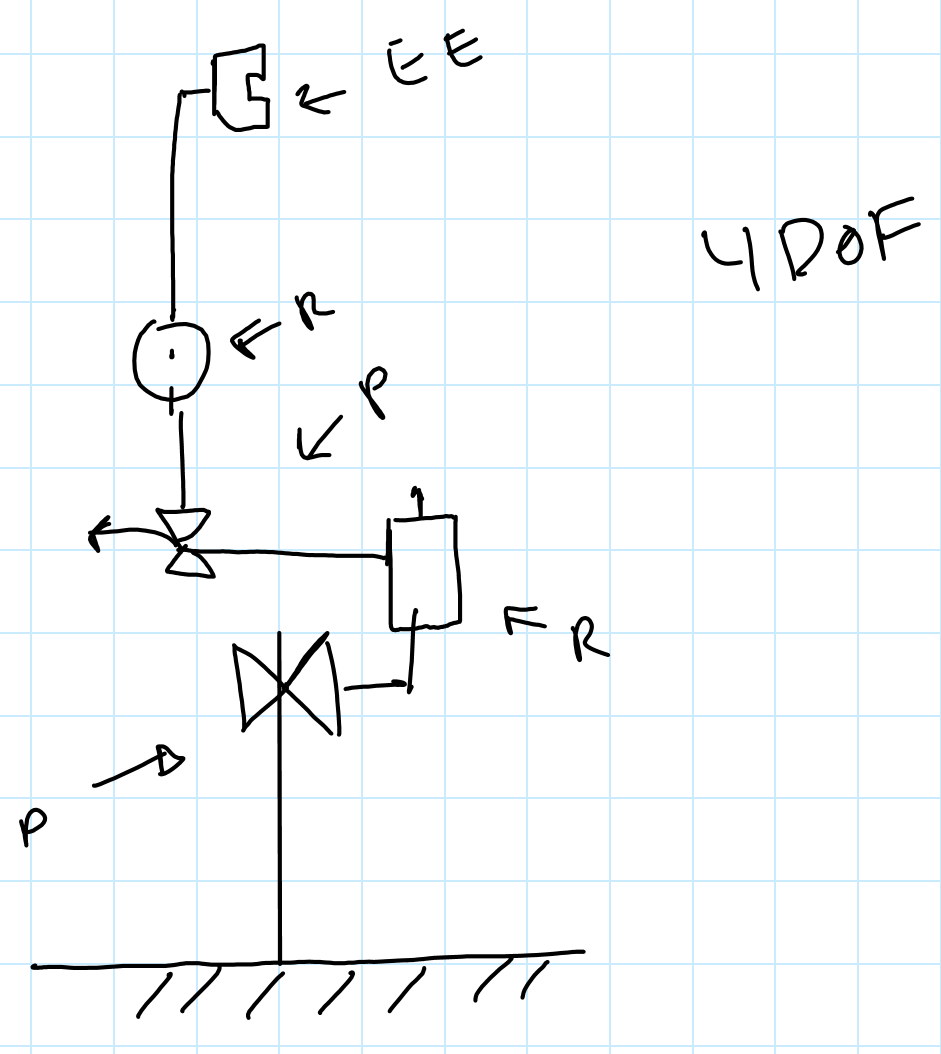 EE
4 DOF
R
P
R
P